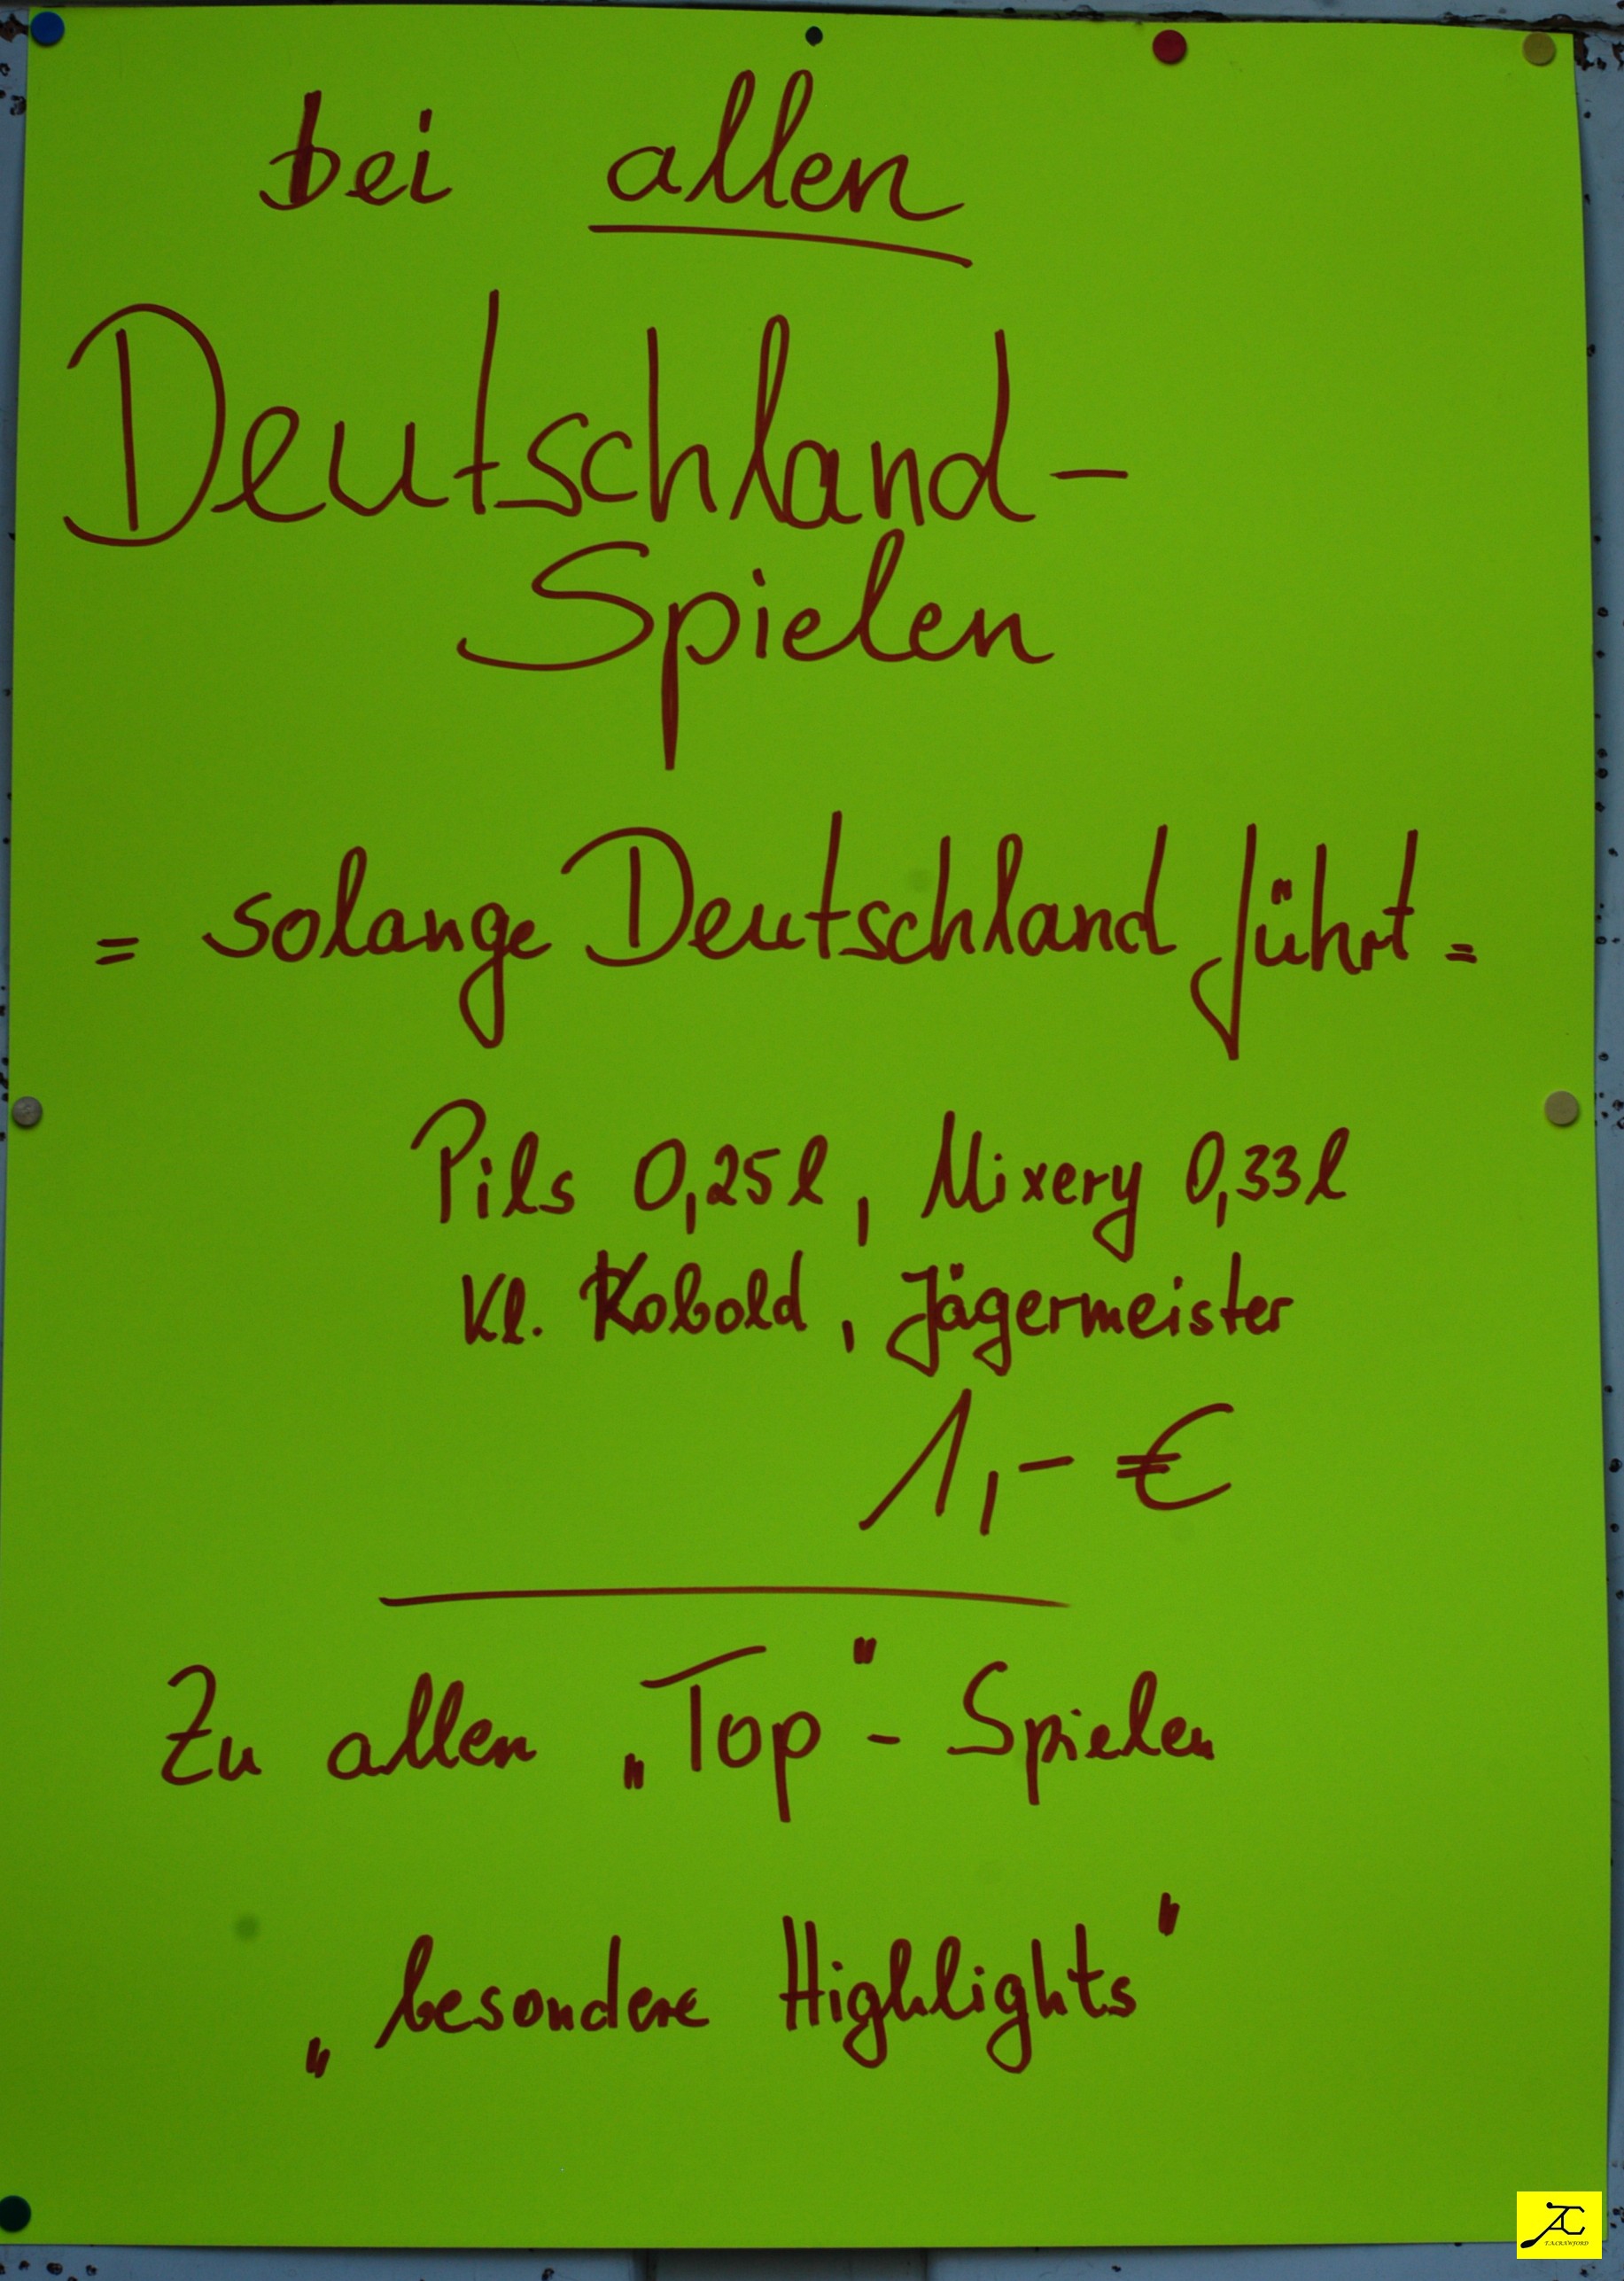 bei allen
Deutschland-
Spielen
= solange Deutschland führt =
Pils 0,25l, Mixery 0,33l
Kl. Kobold, Jägermeister
1,- €
Zu allen „Top"- Spielen
„besondere Highlights"
T.A.CRAWFORD